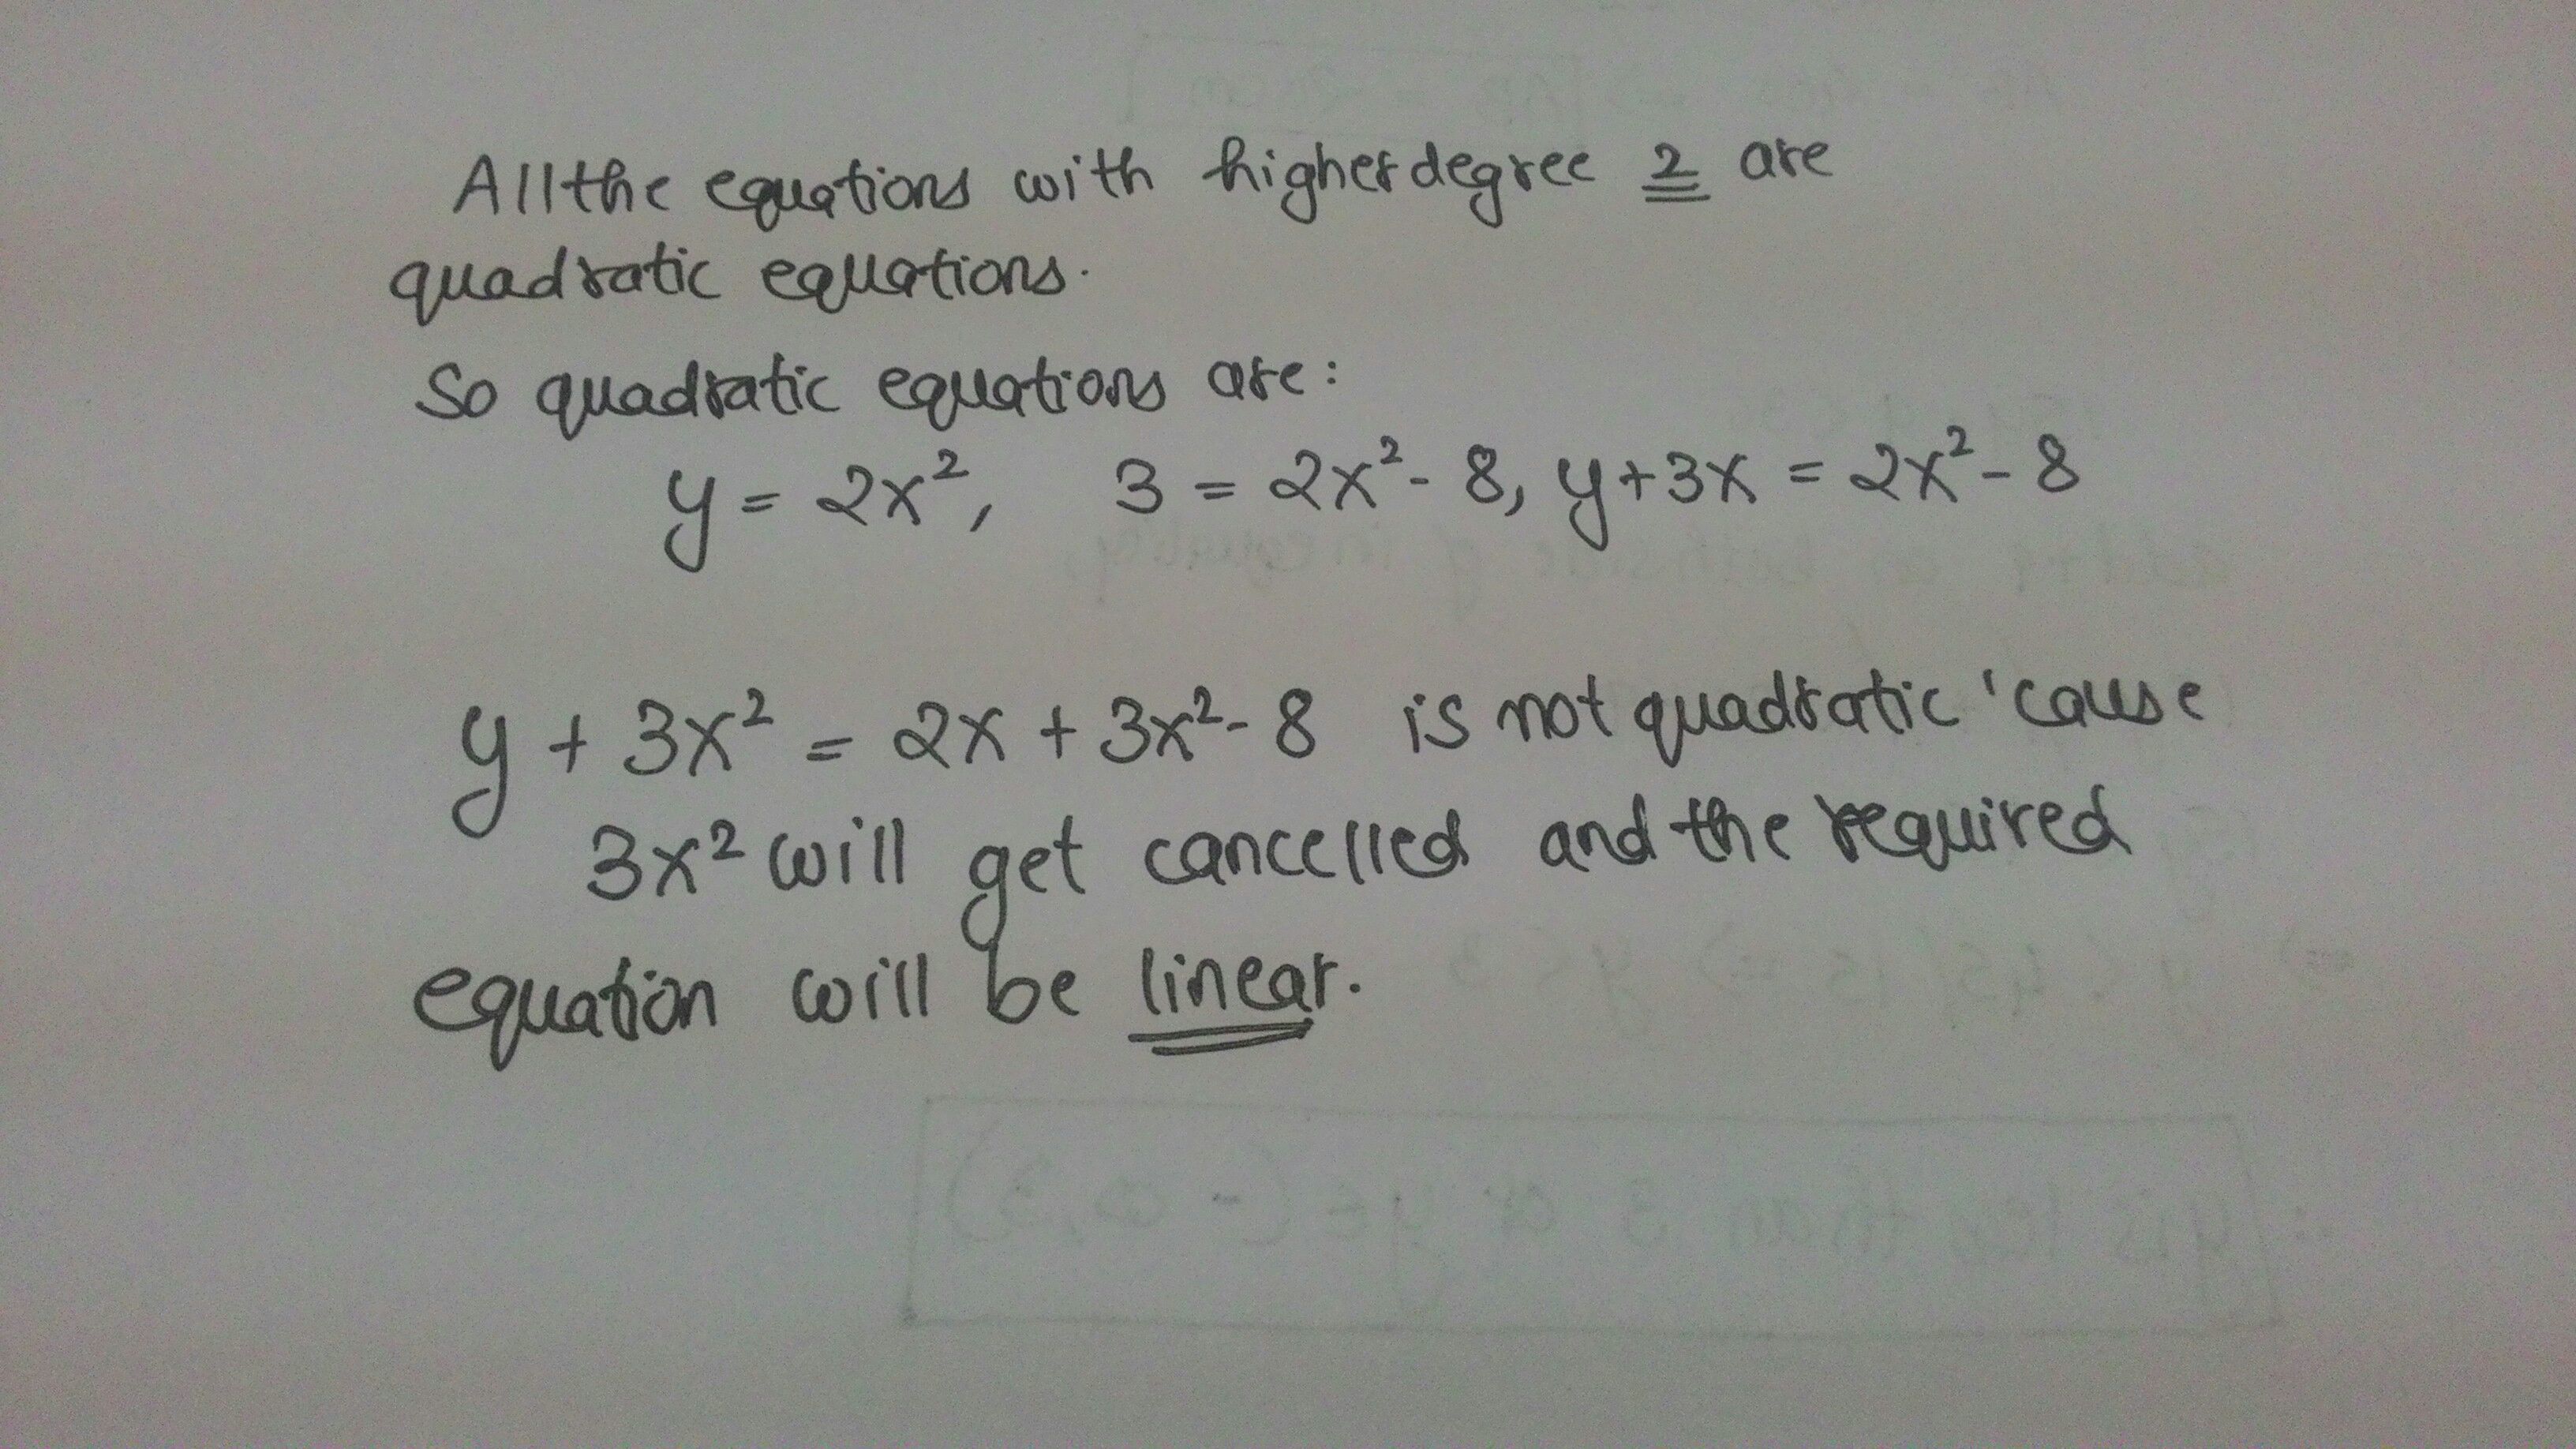 All the equations with higher degree 2 are
quadratic equations.
So quadratic equations are:
y = 2x², 3 = 2x² - 8, y + 3x = 2x² - 8
y + 3x² = 2x + 3x² - 8 is not quadratic 'cause
3x² will get cancelled and the required
equation will be linear.